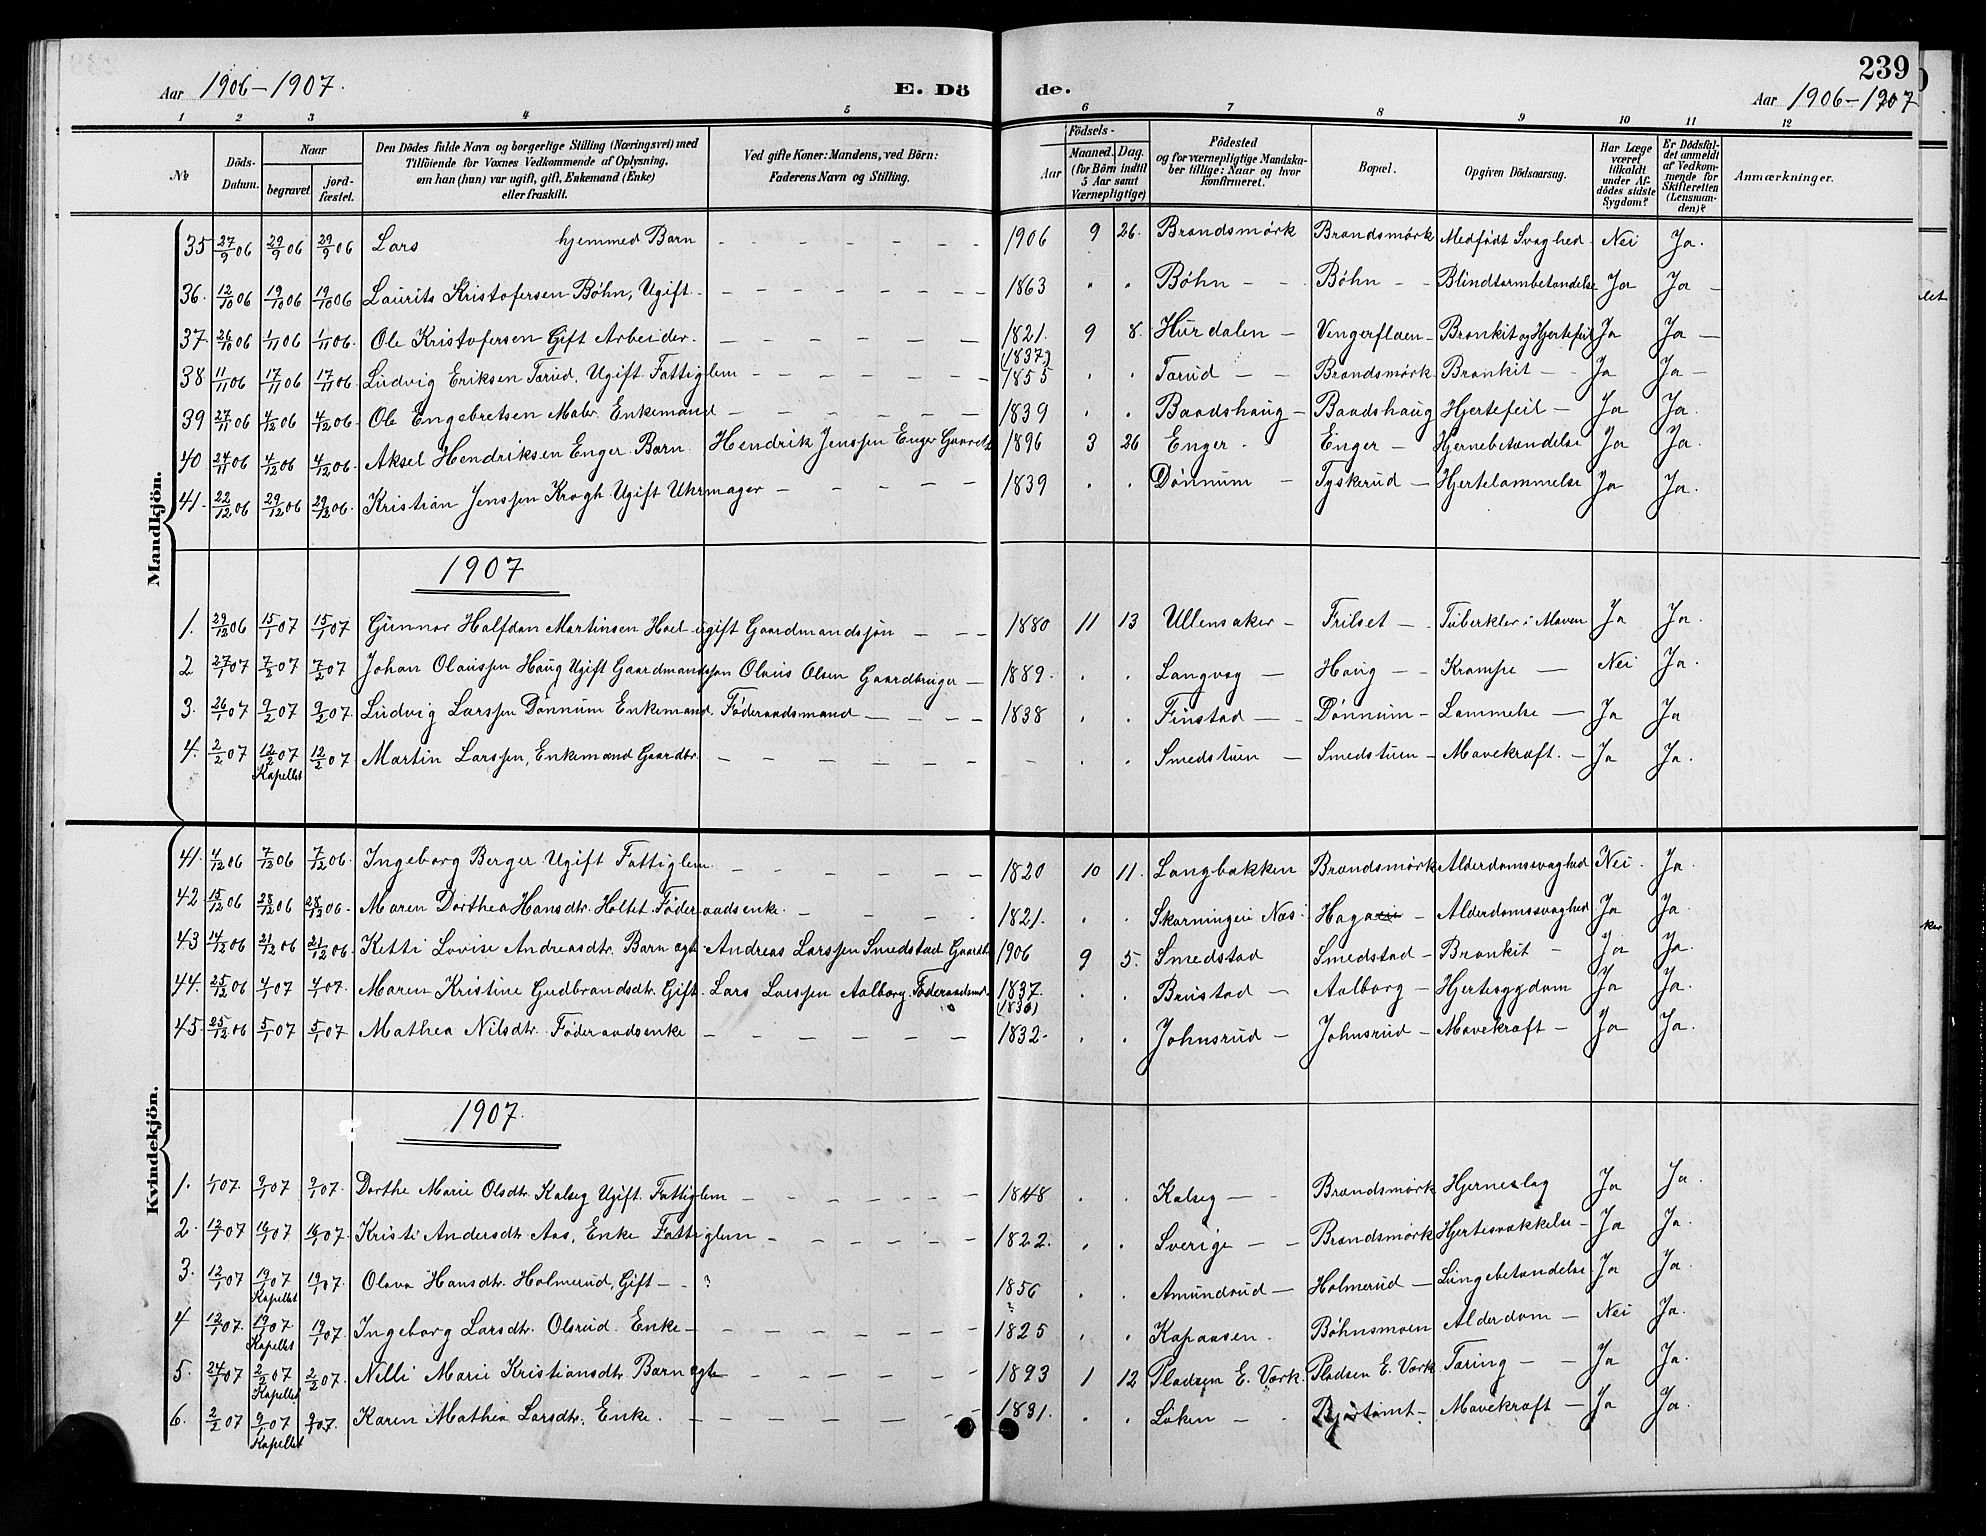 239
Aar 1906-1907.
E. Dö
de.
Aar 1906-1907
1 2 3 4 5 6 7 8 9 10 11 12
№ Döds-Datum. Naar begravet jord-fæstet. Den Dödes fulde Navn og borgerlige Stilling (Næringsvei) med Tilföiende for Voxnes Vedkommende af Oplysning, om han (hun) var ugift, gift, Enkemand (Enke) eller fraskilt. Ved gifte Koner: Mandens, ved Börn: Faderens Navn og Stilling. Födsels- Aar Maaned. Dag. (for Börn indtil 5 Aar samt Værnepligtige) Födested og for værnepligtige Mandskaber tillige: Naar og hvor konfirmeret. Bopæl. Opgiven Dödsaarsag. Har Læge været tilkaldt under Afdödes sidste Sygdom? Er Dödsfaldet anmeldt af Vedkommende for Skifteretten (Lensmanden)? Anmærkninger.
Mandkjön.
35 27/9 06 29/9 06 29/9 06 Lars hjemmed. Barn - - - - - - - 1906 9 26. Brandsmörk Brandsmörk Medfödt Svaghed. Nei Ja.
36. 12/10 06 19/10 06 19/10 06 Laurits Kristofersen Böhn, Ugift - - - - - - - 1863 " " Böhn - - Böhn - - Blindtarmbetændelse Ja Ja -
37 26/10 06 1/11 06 1/11 06. Ole Kristofersen Gift Arbeider. - - - - - - 1821. (1837) 9 8. Hurdalen - Vengerflaen - Bronkit og Hjertefeil Ja Ja -
38 11/11 06 17/11 06 17/11 06 Ludvig Eriksen Tarud, Ugift Fattiglem - - - - - - 1855 . . Tarud - - Brandsmörk Bronkit - - Ja Ja -
39 27/11 06 4/12 06 4/12 06. Ole Engebretsen Maler. Enkemand - - - - - - 1839 . . Baadshaug - Baadshaug Hjertefeil - Ja Ja.
40 24/11 06 4/12 06 4/12 06. Aksel Hendriksen Enger Barn. Hendrik Jenssen Enger Gaardb 1896 3 26 Enger - Enger - Hjernebetændelse Ja Ja.
41. 22/12 06 29/12 06 29/12 06. Kristian Jenssen Krogh Ugift Uhrmager - - - - - 1839 . . Dönnum - Tyskerud - Hjertelammelse Ja Ja.
1907
1. 29/12 06 15/1 07 15/1 07 Gunnar Halfdan Martinsen Hoel ugift Gaardmandssön - - - 1880 11 13 Ullensaker - Frilset - Tuberkler i Maven Ja Ja.
2 27/1 07 7/2 07 7/2 07 Johan Olaussen Haug Ugift Gaardmandssøn Olaus Olsen Gaardbruger - 1889. . . Langvag - Haug - - Krampe - Nei Ja.
3. 26/1 07 9/2 07 9/2 07. Ludvig Larssen Dönnum Enkemand. Föderaadsmand - - - - 1838 . . Finstad - - Dönnum - Lammelse - Ja Ja
4. 2/2 07 12/2 07 Kapellet 12/2 07 Martin Larssen, Enkemand Gaardbr. - - - - - - - . . Smedstuen - Smedstuen - Mavekræft. - Ja Ja.
Kvindekjön.
41. 4/12 06 7/12 06 7/12 06. Ingeborg Berger Ugift Fattiglem - - - - - - 1820 10 11. Langbakken Brandsmörk Alderdomssvaghed Nei. Ja
42 15/12 06 28/12 06 28/12 06. Maren Dorthea Hansdtr. Holtet. Föderaadsenke. - - - - 1821. . . Skarningen Næs. Haga - Alderdomssvaghed Ja Ja.
43 14/12 06 21/12 06 21/12 06. Ketti Lovise Andreasdtr. Barn egte Andreas Larssen Smedstad Gaardb. 1906 9 5. Smedstad Smedstad - Bronkit - Ja Ja.
44. 25/12 06 4/1 07 4/1 07. Maren Kristine Gudbrandsdtr. Gift. Lars Larssen Aalborg. Föderaadsmd. 1837. (1836) . . Brustad - Aalborg - Hjertesygdom Ja Ja.
45. 25/12 06 5/1 07 5/1 07. Mathea Nilsdtr. Föderaadsenke - - - - - - 1832. . . Johnsrud - Johnsrud - Mavekræft - Ja Ja.
1907.
1. 1/1 07. 9/1 07 9/1 07. Dorthe Marie Olsdtr. Kalseg Ugift. Fattiglem - - - - - 1848 . . Kalseg - - Brandsmörk Hjerneslag Ja Ja.
2. 12/1 07 16/1 07 16/1 07. Kristi Andersdtr Aas, Enke Fattiglem - - - - - 1822. . . Sverige - - Brandsmörk Hjertesvækkelse - Ja Ja.
3. 12/1 07 19/1 07 Kapellet 19/1 07. Olava Hansdtr. Holmerud, Gift - - ? 1856 ? . . Amundrud - Holmerud - Lungebetændelse Ja Ja.
4 12/1 07. 19/1 07 Kapellet 19/1 07. Ingeborg Larsdtr. Olsrud. Enke - - - - - - 1825 . . Kapaasen. Böhnsmoen Alderdom - Nei Ja.
5. 24/1 07 2/2 07 Kapellet 2/2 07. Nelli Marie Kristiansdtr. Barn egte - - - - - - 1893 1 12 Pladsen E. Værk. Pladsen E. Værk Tæring - - Ja Ja.
6. 2/2 07 9/2 07 Kapellet 9/2 07. Karen Mathea Larsdtr, Enke. - - - - - - 1831. . . Löken - - - Mavekræft - Ja Ja.